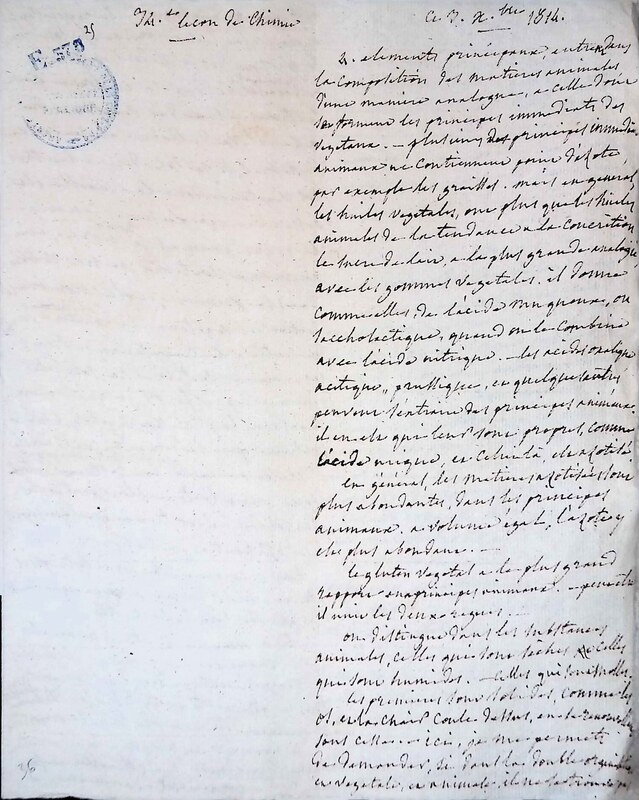 25
leçon de Chimie
Ce 7. Xbre 1814.
E. 573
2. elements principaux, entre dans
la composition des matieres animales
d'une maniere analogue, a celle dont
se forment les principes immediats des
vegetaux. — plusieurs des principes immediats
animaux ne contiennent point d'azote,
par exemple les graisses. mais en general
les huiles vegetales, ont plus que les huiles
animales de la tendance a la concretion
le sucre de lait, a la plus grande analogie
avec les gommes vegetales. il donne
comme elles, de l'acide muqueux, ou
saccholactique, quand on le combine
avec l'acide nitrique. — les acides oxalique
acetique, prussique, et quelques autres
peuvent s'extraire des principes animaux.
il en est qui leur sont propres, comme
l'acide urique, et celui là, est azotisé
en général, les matieres azotisées sont
plus abondantes, dans les principes
animaux. a volume égal, l'azote y
est plus abondant. —
le gluten vegetal a le plus grand
rapport aux principes animaux. — peut etre
il unit les deux regnes. —
on distingue dans les substances
animales, celles qui sont seches & celles
qui sont humides. — celles qui sont molles
les premieres sont solides, comme les
os, et la chair
sont celles — ici, je me permets
de demander, si dans la double
et vegetale, et animale, il ne
36